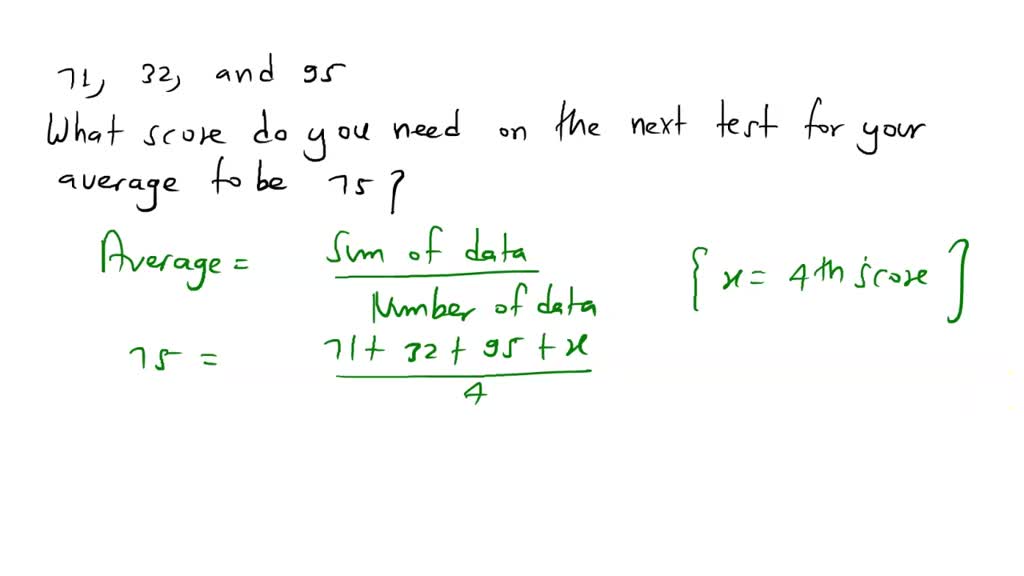 71, 32, and 95
What score do you need on the next test for your
average to be 75?
Average = Sum of data / Number of data [x = 4th score]
75 = 71 + 32 + 95 + x / 4